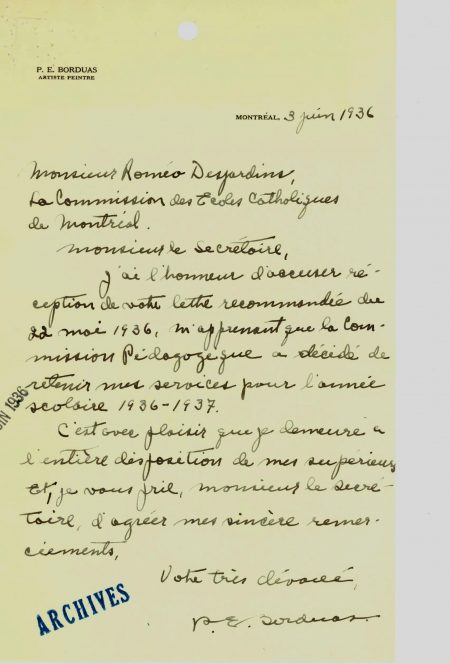 P. E. BORDUAS
ARTISTE PEINTRE
MONTRÉAL, 3 juin 1936
Monsieur Roméo Desjardins,
La Commission des Ecoles Catholiques
de Montréal.
Monsieur le Secrétaire,
J'ai l'honneur d'accuser ré-
ception de votre lettre recommandée du
22 mai 1936, m'apprenant que la Com-
mission Pédagogique a décidé de
retenir mes services pour l'année
scolaire 1936-1937.
C'est avec plaisir que je demeure à
l'entière disposition de mes supérieurs
Et, je vous prie, monsieur le secré-
taire, d'agréer mes sincère remer-
ciements,
Votre très dévoué,
P. E. Borduas.
1936
ARCHIVES